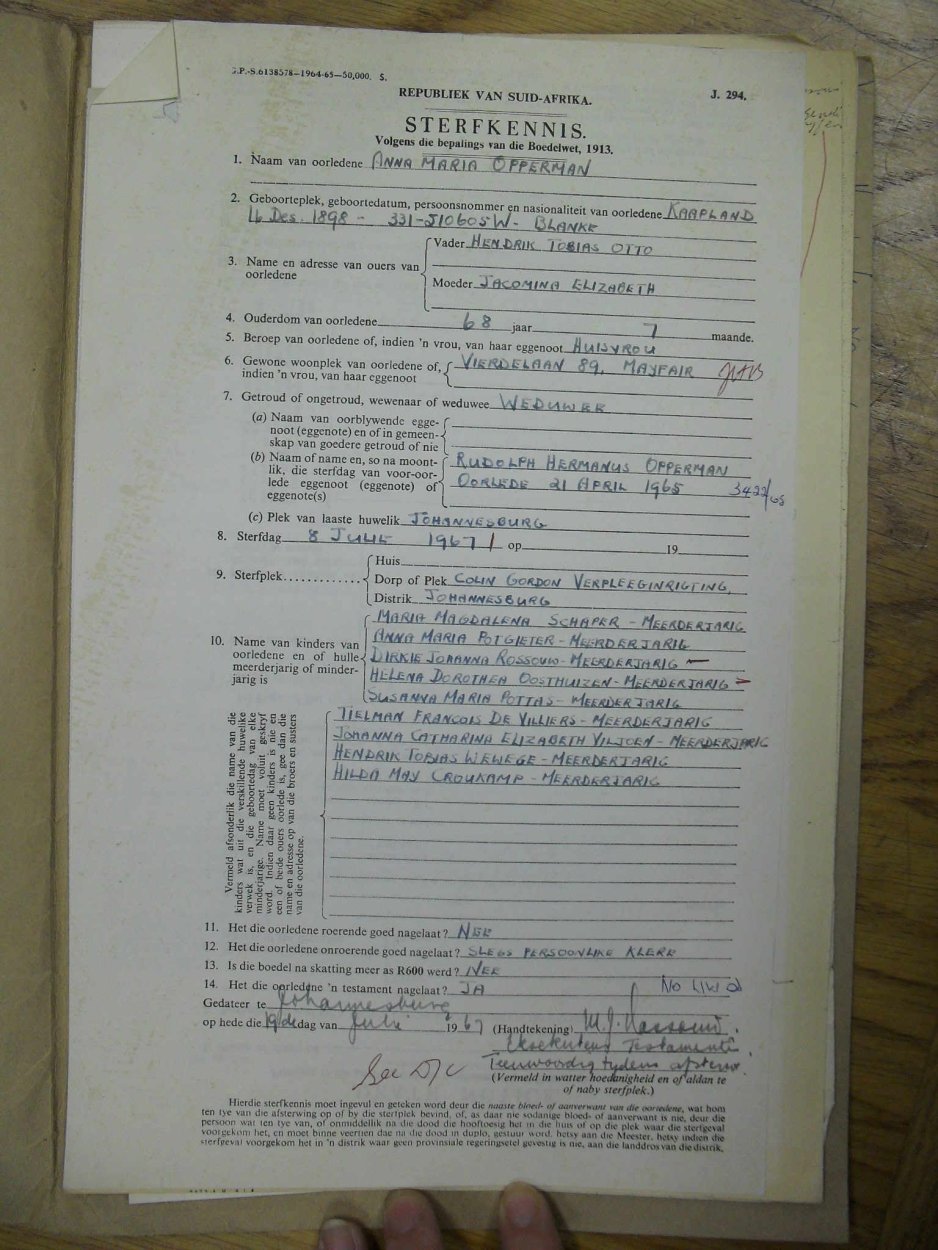 G.P.-S.6138578—1964-65—50,000. S.
J. 294.
REPUBLIEK VAN SUID-AFRIKA.
STERFKENNIS.
Volgens die bepalings van die Boedelwet, 1913.
1. Naam van oorledene ANNA MARIA OPPERMAN
2. Geboorteplek, geboortedatum, persoonsnommer en nasionaliteit van oorledene KAAPLAND
Des. 1898 - 331-J10605W - BLANKE
3. Name en adresse van ouers van oorledene
Vader HENDRIK TOBIAS OTTO
Moeder JACOMINA ELIZABETH
4. Ouderdom van oorledene 68 jaar 7 maande.
5. Beroep van oorledene of, indien 'n vrou, van haar eggenoot HUISVROU
6. Gewone woonplek van oorledene of, indien 'n vrou, van haar eggenoot
VIERDELAAN 89, MAYFAIR
7. Getroud of ongetroud, wewenaar of weduwee WEDUWEE
(a) Naam van oorblywende eggenoot (eggenote) en of in gemeenskap van goedere getroud of nie
(b) Naam of name en, so na moontlik, die sterfdag van voor-oorlede eggenoot (eggenote) of eggenote(s)
RUDOLPH HERMANUS OPPERMAN
OORLEDE 21 APRIL 1965 3422/65
(c) Plek van laaste huwelik JOHANNESBURG
8. Sterfdag 8 JULIE 1967 op 19
9. Sterfplek
Huis
Dorp of Plek COLIN GORDON VERPLEEGINRIGTING,
Distrik JOHANNESBURG
10. Name van kinders van oorledene en of hulle meerderjarig of minderjarig is
MARIA MAGDALENA SCHAPER - MEERDERJARIG
ANNA MARIA POTGIETER - MEERDERJARIG
DIRKIE JOHANNA ROSSOUW - MEERDERJARIG
HELENA DOROTHEA OOSTHUIZEN - MEERDERJARIG
SUSANNA MARIA POTTAS - MEERDERJARIG
TIELMAN FRANCOIS DE VILLIERS - MEERDERJARIG
JOHANNA CATHARINA ELIZABETH VILJOEN - MEERDERJARIG
HENDRIK TOBIAS WEWEGE - MEERDERJARIG
HILDA MAY CROUKAMP - MEERDERJARIG
Vermeld afsonderlik die name van die
kinders wat uit die verskillende huwelike
verwek is, en die geboortedag van elke
minderjarige. Name moet voluit geskryf
word. Indien daar geen kinders is nie en
een of beide ouers oorlede is, gee dan die
name en adresse op van die broers en susters
van die oorledene.
11. Het die oorledene roerende goed nagelaat? NEE
12. Het die oorledene onroerende goed nagelaat? SLEGS PERSOONLIKE KLERE
13. Is die boedel na skatting meer as R600 werd? NEE
14. Het die oorledene 'n testament nagelaat? JA
Gedateer te Johannesburg
op hede die 19de dag van Julie 1967 (Handtekening)
Teenwoordig tydens afsterwe.
(Vermeld in watter hoedanigheid en of aldan te
of naby sterfplek.)
See D/C
Hierdie sterfkennis moet ingevul en geteken word deur die naaste bloed- of aanverwant van die oorledene, wat hom
ten tye van die afsterwing op of by die sterfplek bevind, of, as daar nie sodanige bloed- of aanverwant is nie, deur die
persoon wat ten tye van, of onmiddellik na die dood die hooftoesig het in die huis of op die plek waar die sterfgeval
voorgekom het, en moet binne veertien dae na die dood in duplo, gestuur word, hetsy aan die Meester, hetsy indien die
sterfgeval voorgekom het in 'n distrik waar geen provinsiale regeringsetel gevestig is nie, aan die landdros van die distrik,